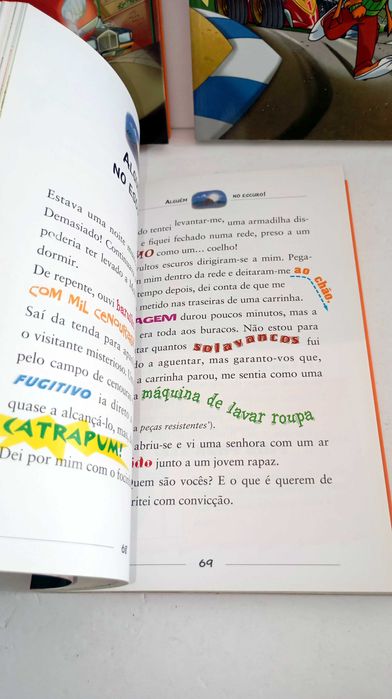 NO ES
Estava uma noite
Demasiado!
poderia ter levado a
dormir.
De repente, ouvi
COM MIL CENOURAS
Saí da tenda para
o visitante misterioso.
pelo campo de cenouras
FUGITIVO ia direito
quase a alcançá-lo, mas
CATRAPUM!
Dei por mim com o foci
68
ALGUÉM NO ESCURO!
do tentei levantar-me, uma armadilha dis-
e fiquei fechado numa rede, preso a um
NO como um... coelho!
ultos escuros dirigiram-se a mim. Pega-
n mim dentro da rede e deitaram-me ao chão.
tempo depois, dei conta de que me
metido nas traseiras de uma carrinha.
AGEM durou poucos minutos, mas a
era toda aos buracos. Não estou para
tar quantos solavancos fui
do a aguentar, mas garanto-vos que,
a carrinha parou, me sentia como uma
máquina de lavar roupa
a peças resistentes').
abriu-se e vi uma senhora com um ar
ido junto a um jovem rapaz.
uem são vocês? E o que é querem de
ritei com convicção.
69